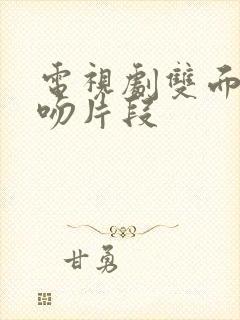 電視劇雙面
吻片段
甘勇